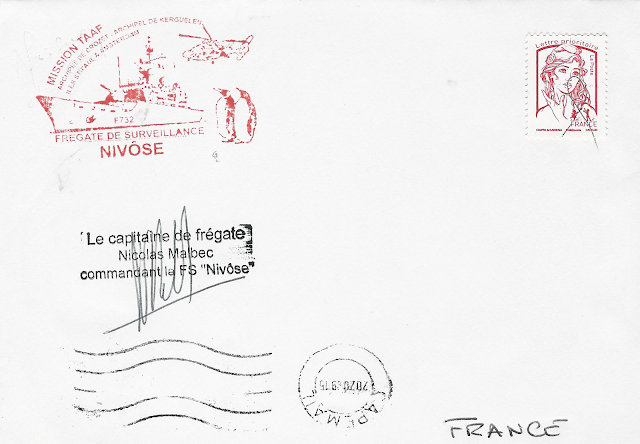 MISSION TAAF
ARCHIPEL DE CROZET - ARCHIPEL DE KERGUELEN
ILES ST PAUL & AMSTERDAM
F732
FRÉGATE DE SURVEILLANCE
NIVÔSE
Lettre prioritaire
La Poste
FRANCE
Le capitaine de frégate
Nicolas Malbec
commandant la FS "Nivôse"
FRANCE